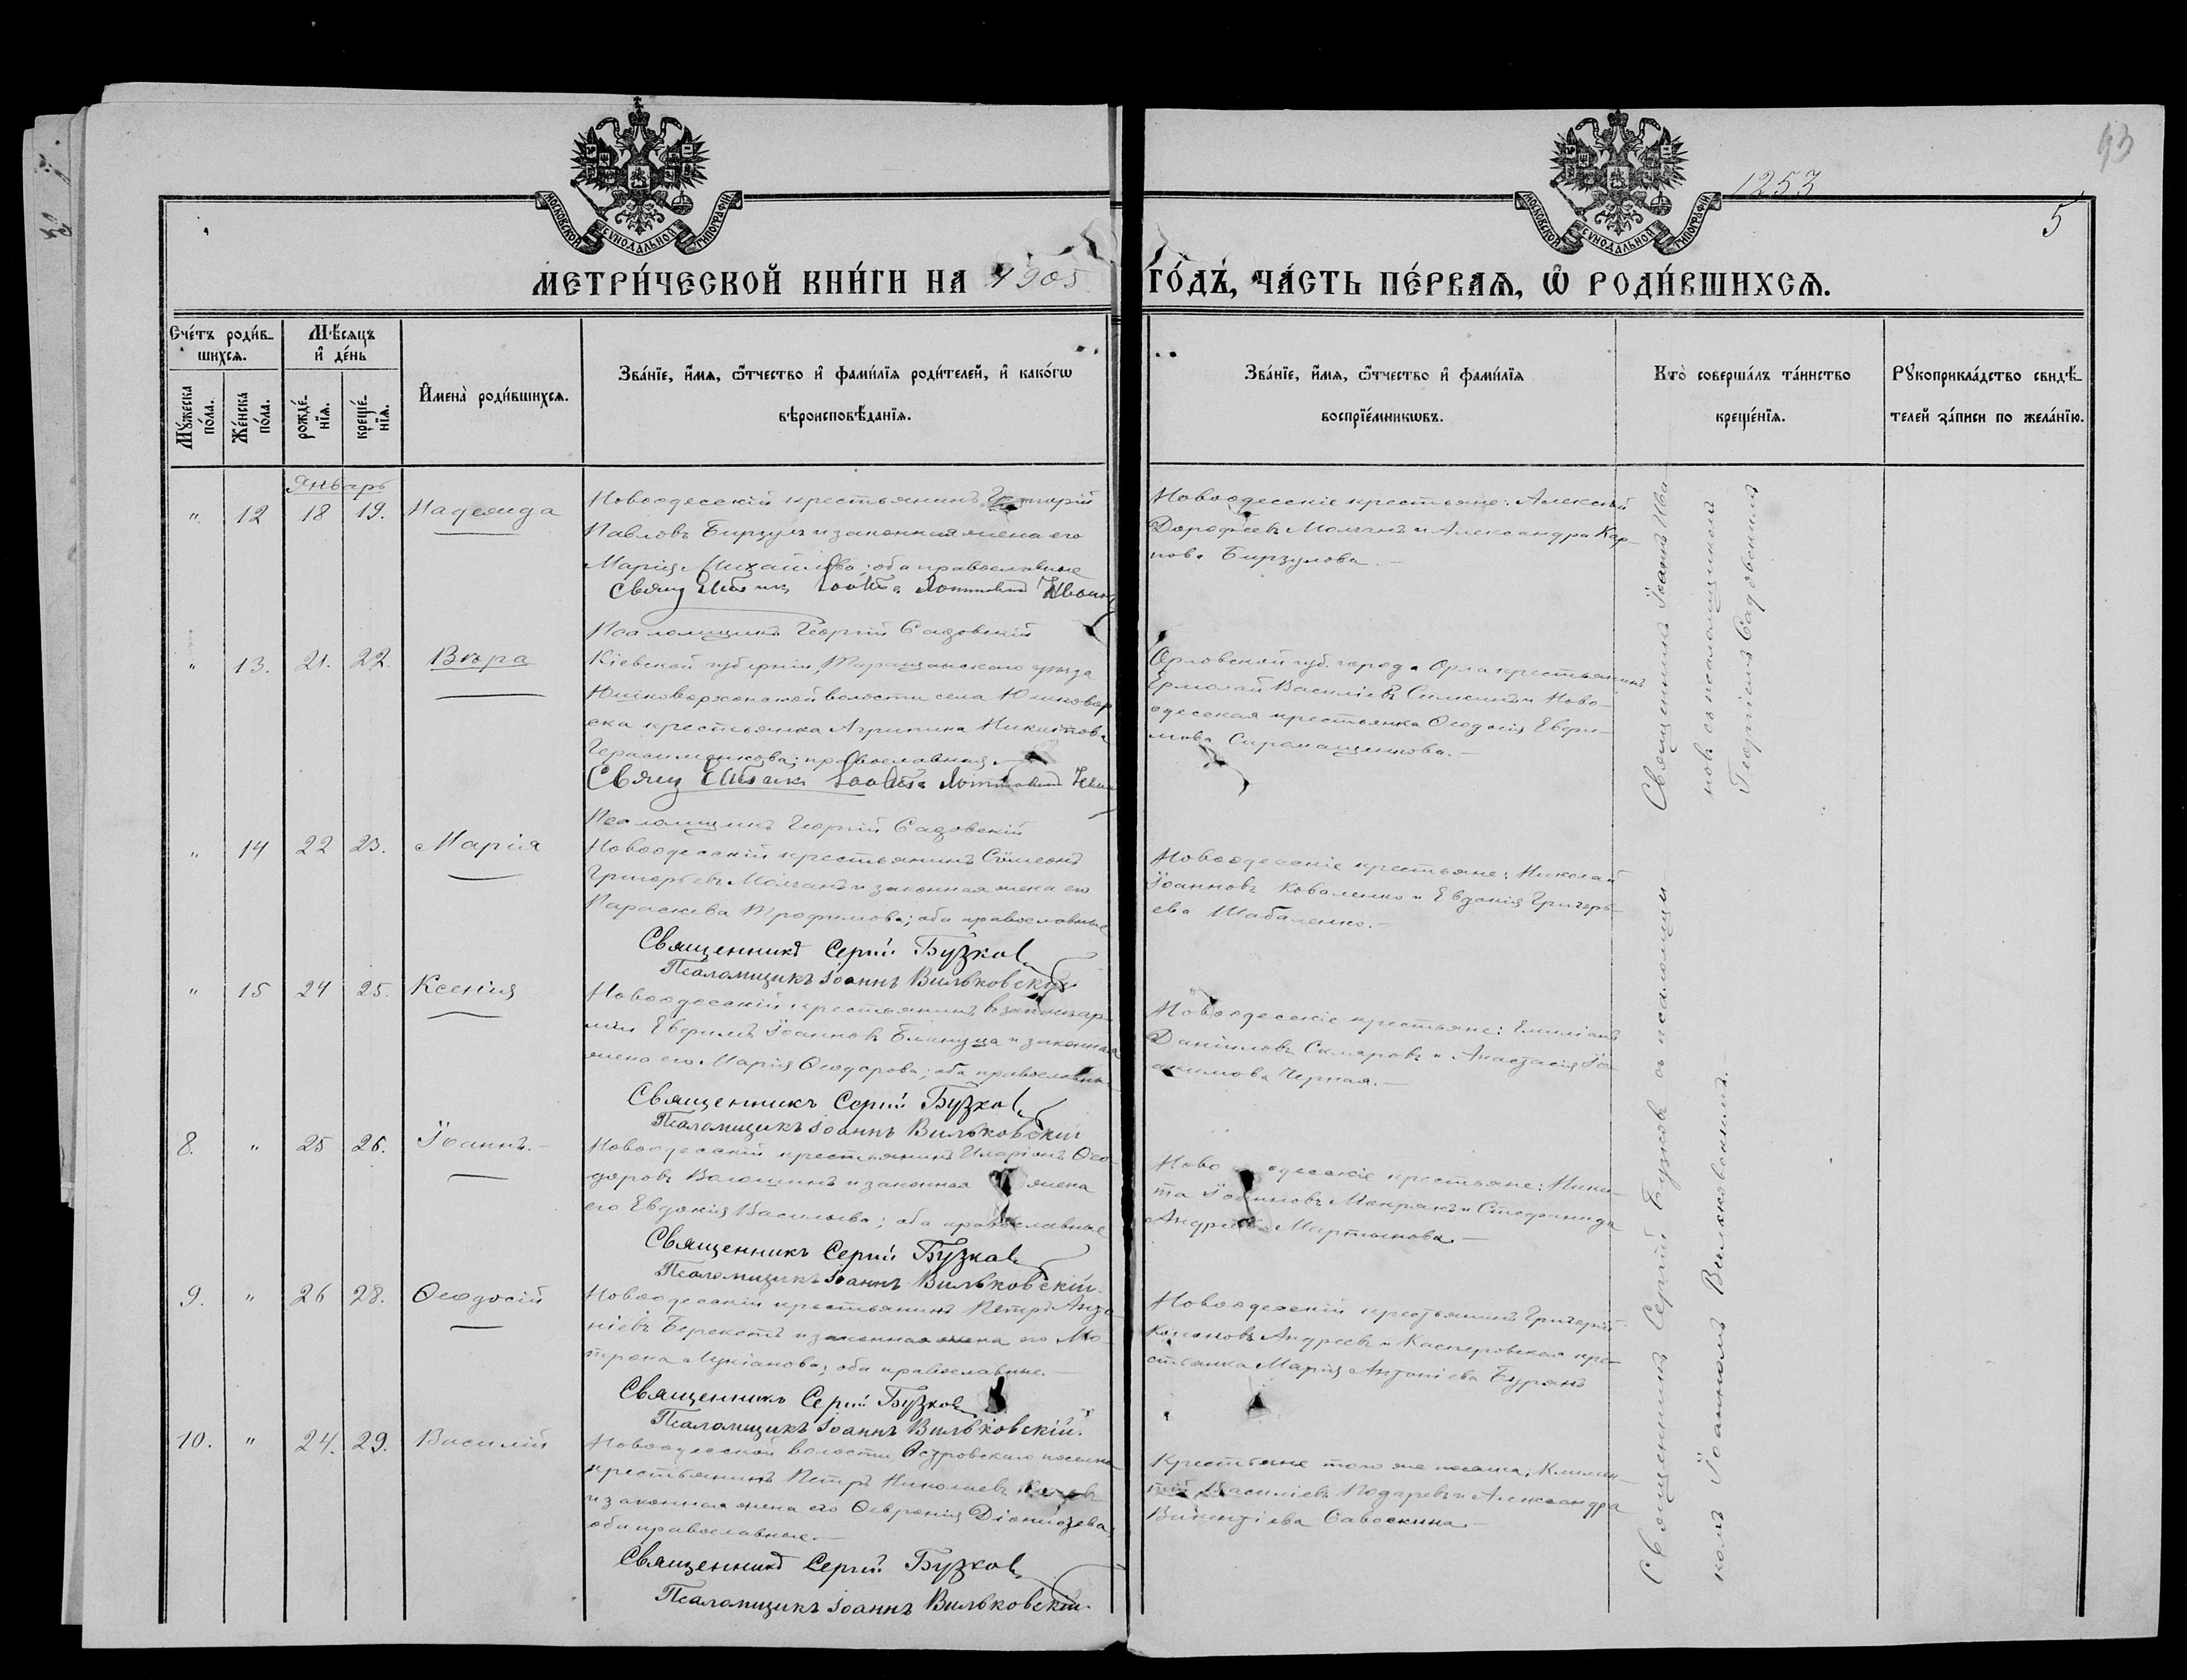 МОСКОВСКОЙ СУНОДАЛЬНОЙ ТИПОГРАФІИ
МОСКОВСКОЙ СУНОДАЛЬНОЙ ТИПОГРАФІИ
93
1253
5
МЕТРИ́ЧЕСКОЙ КНИ́ГИ НА 1905
ГО́ДЪ, ЧА́СТЬ ПЕ́РВАѦ, Ѡ РОДИ́ВШИХСѦ.
Сче́тъ роди́в-
шихсѧ.
Мꙋ́жеска по́ла.
Же́нска по́ла.
Мѣ́сѧцъ
и҆ де́нь
рожде́-
нїѧ.
креще́-
нїѧ.
И҆мена̀ роди́вшихсѧ.
Зва́нїе, и҆́мѧ, ѻ҆́тчество и҆ фами́лїѧ роди́телей, и҆ како́гѡ
вѣроисповѣ́данїѧ.
Зва́нїе, и҆́мѧ, ѻ҆́тчество и҆ фами́лїѧ
воспрїе́мникѡвъ.
Кто̀ соверша́лъ та́инство
креще́нїѧ.
Рꙋкоприкла́дство свидѣ́-
телей за́писи по жела́нїю.
Январь
" 12 18 19. Надежда
Новоодесскій крестьянинъ Григорій
Павловъ Бирзулъ и законная жена его
Марія Михайлова; оба православные
Псаломщикъ Георгій Садовскій
Новоодесскіе крестьяне: Алексѣй
Дорофеевъ Молчанъ и Александра Кар-
пова Бирзулова. –
" 13. 21. 22. Вѣра
Кіевской губерніи, Таращанскаго уѣзда
волости села
крестьянка Агрипина Никитова
православная.
Псаломщикъ Георгій Садовскій
Орловской губ. города Орла крестьянинъ
Ермолай Василіевъ и Ново-
одесская крестьянка Ѳеодосія Евфи-
мова Сиромащенкова. –
" 14 22 23. Марія
Новоодесскій крестьянинъ Сѵмеонъ
Григорьевъ Молчанъ и законная жена его
Параскева Трофимова; оба православные
Священникъ Сергій Бузков
Псаломщикъ Іоаннъ Вильковскій
Новоодесскіе крестьяне: Николай
Іоанновъ Коваленко и Евдокія Григорь-
ева Шабаленко. –
" 15 24 25. Ксенія
Новоодесскій крестьянинъ, в запас. ар-
міи Евфимъ Іоанновъ и законная
жена его Марія Ѳеодорова; оба православные
Священникъ Сергій Бузков
Псаломщикъ Іоаннъ Вильковскій
Новоодесскіе крестьяне: Емиліанъ
Даніиловъ Скляровъ и Анастасія Іо-
акимова Черная. –
8. " 25 26. Іоаннъ. –
Новоодесскій крестьянинъ Иларіонъ Ѳео-
доровъ Волошинъ и законная жена
его Евдокія Васильева; оба православные
Священникъ Сергій Бузков
Псаломщикъ Іоаннъ Вильковскій.
Новоодесскіе крестьяне: Ники-
та Іоанновъ Мокрякъ и Стефанида
Андреева Мартынова. –
9. " 26 28. Ѳеодосій
Новоодесскій крестьянинъ Петръ
Берекетъ и законная жена его Мо-
трона Лукіанова; оба православные. –
Священникъ Сергій Бузков
Псаломщикъ Іоаннъ Вильковскій.
Новоодесскій крестьянинъ Григорій
Кононовъ Андреевъ и Касперовская кре-
стьянка Марія Антоніева Бурянъ
10. " 24. 29. Василій
Новоодесской волости, Островскаго поселка
крестьянинъ Петръ Николаевъ
и законная жена его Ѳевронія Діонисіева,
оба православные. –
Священникъ Сергій Бузков
Псаломщикъ Іоаннъ Вильковскій.
Крестьяне того же поселка; Климен-
тій Василіевъ и Александра
Викентіева Савоскина. –
Священникъ Іоаннъ Ива-
новъ съ псаломщикомъ
Георгіемъ Садовскимъ
Священникъ Сергій Бузковъ съ псаломщи-
комъ Іоанномъ Вильковскимъ. –